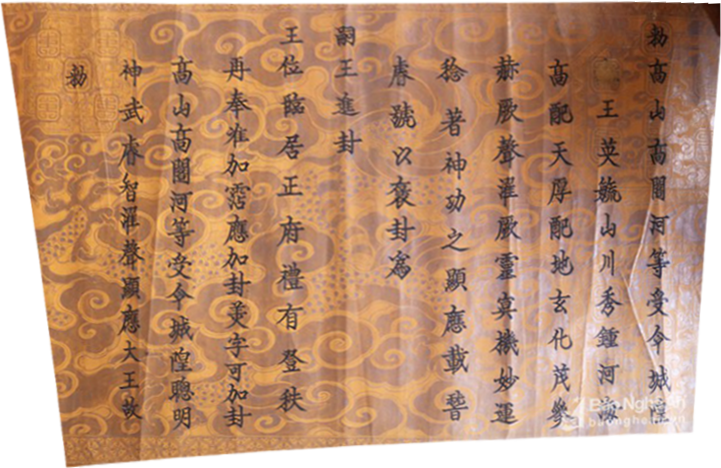 勅高山高閣河等受令城
王英毓山川秀鍾河
高配天厚配地玄化茂參
赫厥聲濯厥靈寘機妙運
稔著神功之顯應載晉
睿號以褒封為
嗣王進封
王位臨居正府禮有登秩
再奉准加霑應加封美字可加封
高山高閣河等受令城隍聰明
神武睿智濯聲顯應大王故
勅
Báo Nghệ An
baonghean.vn